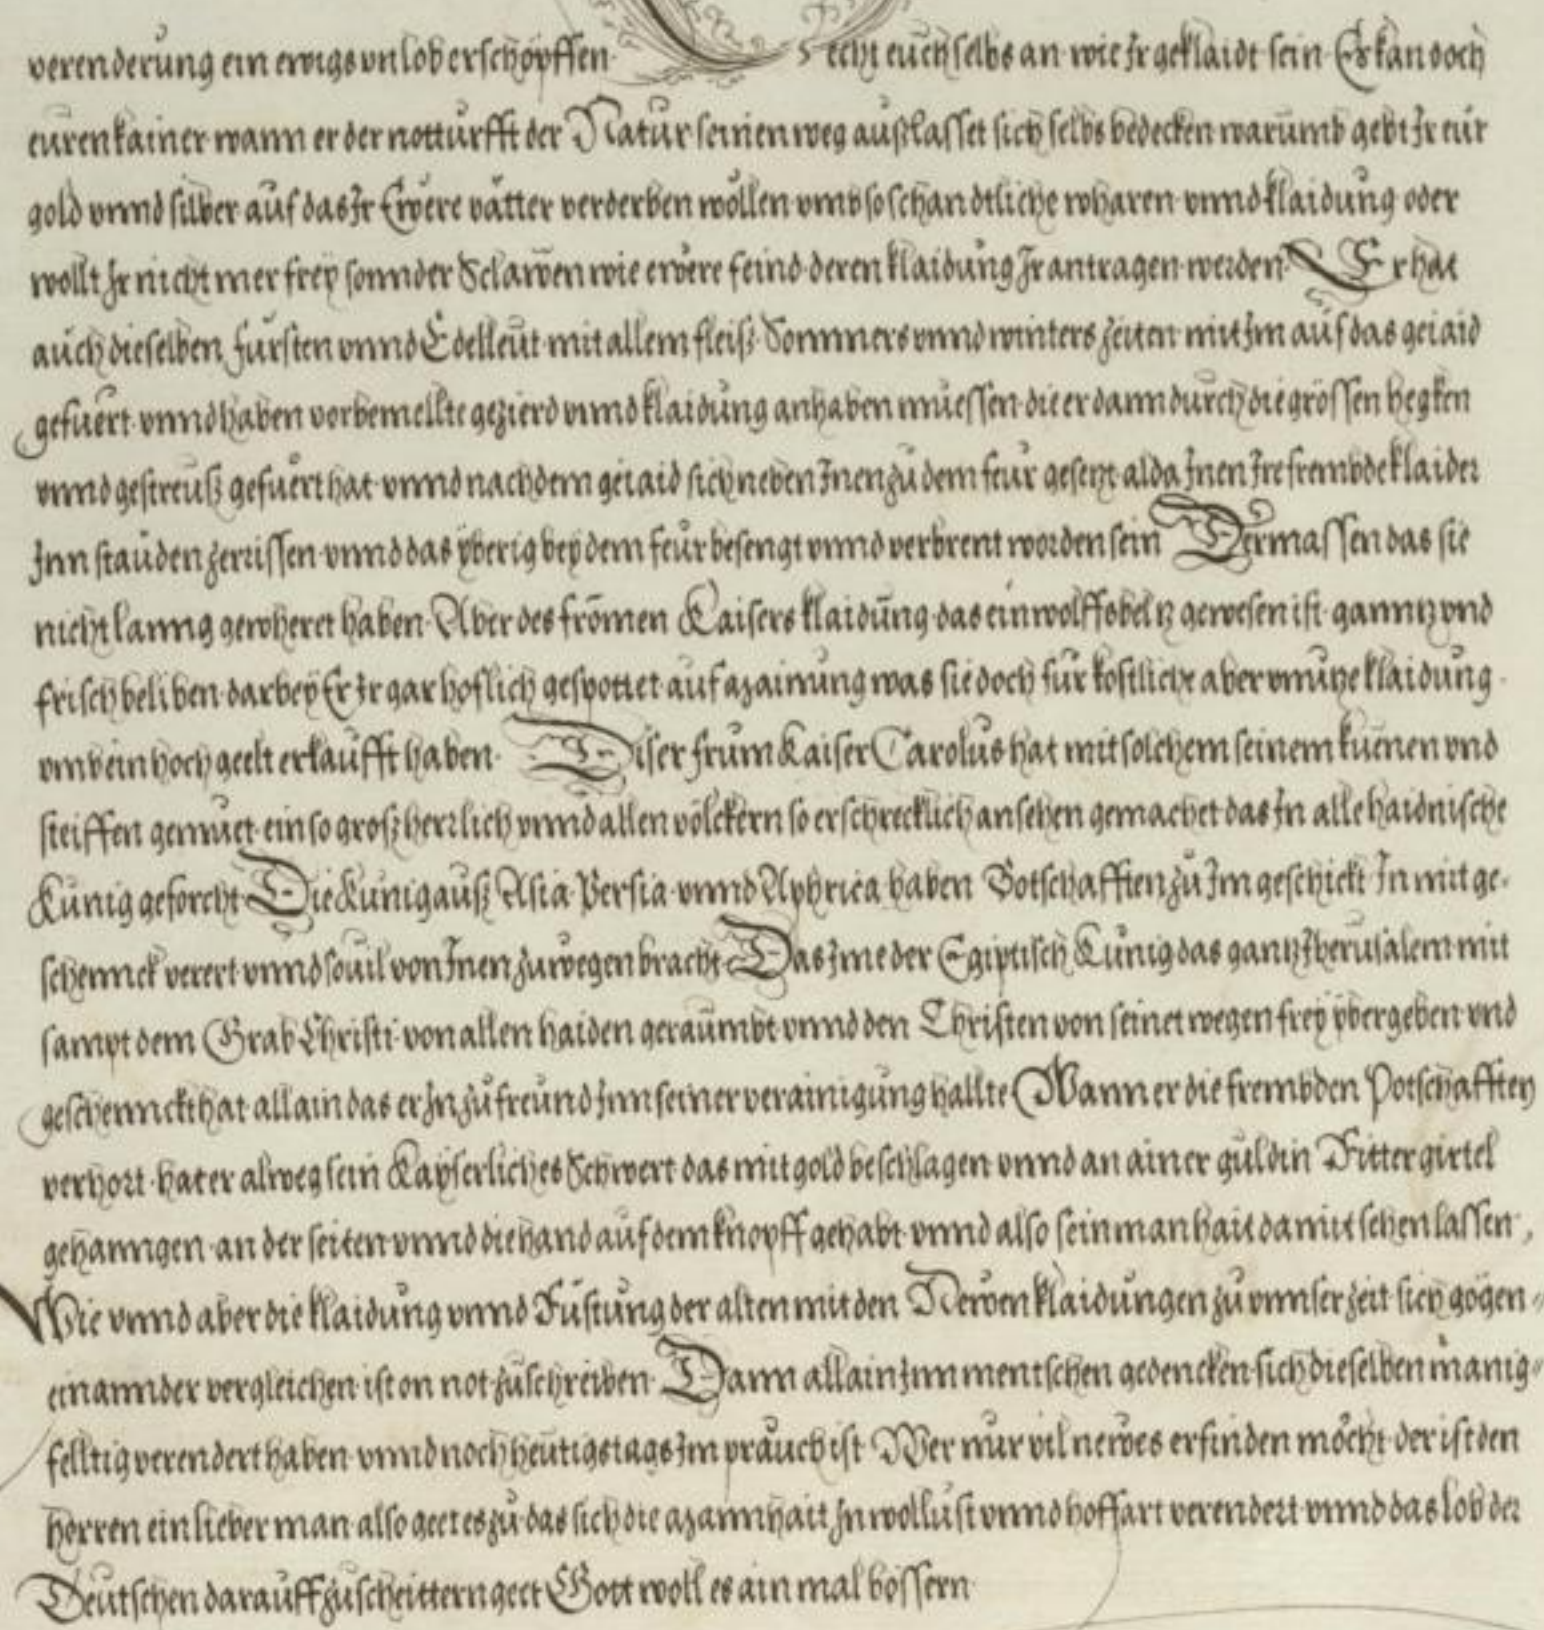 verenderung ein ewigs vnlob erschöpffen. Secht euch selbs an wie Ir geklaidt sein Es kan doch
euren kainer wann er der notturfft der Natur seinen weg ausslasset sich selbs bedecken warumb gebt Ir eur
gold vnnd silber auf das Ir Ewere vätter verderben wöllen vmb so schandtliche wharen vnnd klaidung oder
wollt Ir nicht mer frey sonnder Sclawen wie ewere feind deren klaidung Ir antragen werden. Er hat
auch dieselben Fursten vnnd Edelleut mit allem fleiß Sommers vnnd winters zeiten mit Im auf das geiaid
gefuert vnnd haben vorbemellte gezierd vnnd klaidung anhaben muessen die er dann durch die grössen hegken
vnnd gestreuß gefuert hat vnnd nach dem geiaid sich neben Inen zu dem feur gesetzt alda Inen Ire frembde klaider
Inn stauden zerrissen vnnd das yberig bey dem feur besengt vnnd verbrent worden sein Dermassen das sie
nicht lanng gewheret haben. Aber des fromen Kaisers klaidung das ein wolffsbeltz gewesen ist ganntz vnd
frisch beliben darbey Er Ir gar hoflich gespottet auf azainung was sie doch fur kostliche aber vnnutze klaidung
vmb ein hoch gelt erkaufft haben. Diser frum Kaiser Carolus hat mit solchem seinem kuenen vnd
steiffen gemuet ein so groß herrlich vnnd allen völckern so erschrecklich ansehen gemachet das In alle haidnische
Künig geforcht Die Künig auß Asia Persia vnnd Aphrica haben Botschafften zu Im geschickt In mit ge-
schennck verert vnnd souil von Inen zuwegen bracht Das Ime der Egiptisch Künig das gantz Iherusalem mit
sampt dem Grab Christi von allen haiden geraumbt vnnd den Christen von seinet wegen frey ybergeben vnd
geschennckt hat allain das er In zu freund Inn seiner verainigung hallte Wann er die frembden Potschafften
verhort hat er alweg sein Kayserliches Schwert das mit gold beschlagen vnnd an ainer guldin Rittergirtel
gehanngen an der seiten vnnd die hand auf dem knopff gehabt vnnd also sein manhait damit sehen lassen,
Wie vnnd aber die klaidung vnnd Rüstung der alten mit den Newen klaidungen zu vnnser zeit sich gögen-
einannder vergleichen ist on not zuschreiben. Dann allain Inn mentschen gedencken sich dieselben manig-
felltig verendert haben vnnd noch heutigs tags Im prauch ist Wer nur vil newes erfinden möcht der ist den
herren ein lieber man also geet es zu das sich die azannhait In wollust vnnd hoffart verendert vnnd das lob der
Deutschen darauff zu scheittern geet Gott woll es ain mal bössern